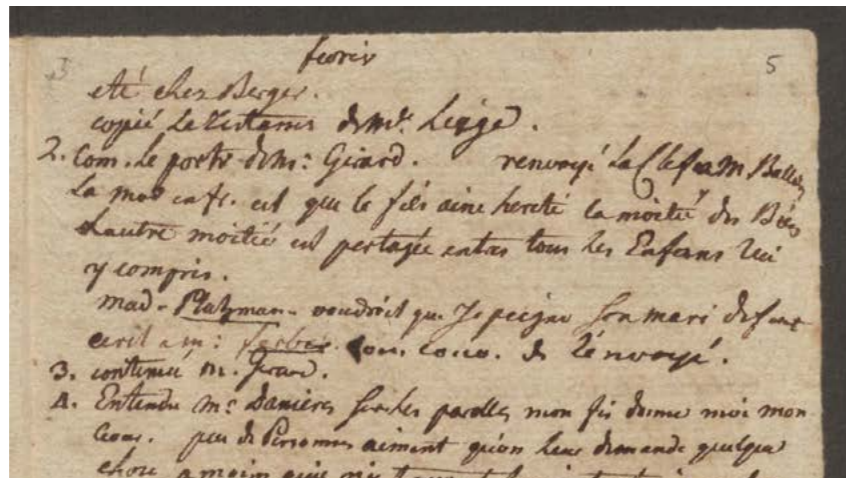 fevrier
3 5
eté chez Berger.
copié Le testament de Md. Leige.
2. Com. Le portr. de Mr: Girard. renvoyé La Clef a M. Ballet
La mode en fr. est que le fils ainé herete la moitié du Bien
L'autre moitié est partagée entre tous les Enfans lui
y compris.
mad. Platzman. voudroit que Je peigne son mari defunt
ecrit a m: Ferber. de L'envoyé.
3. continué M. Girard.
4. Entendu Mr Danieres sur les parolles mon fils donne moi mon
Cœur. peu de Personnes aiment qu'on leur demande quelque
chose a moins